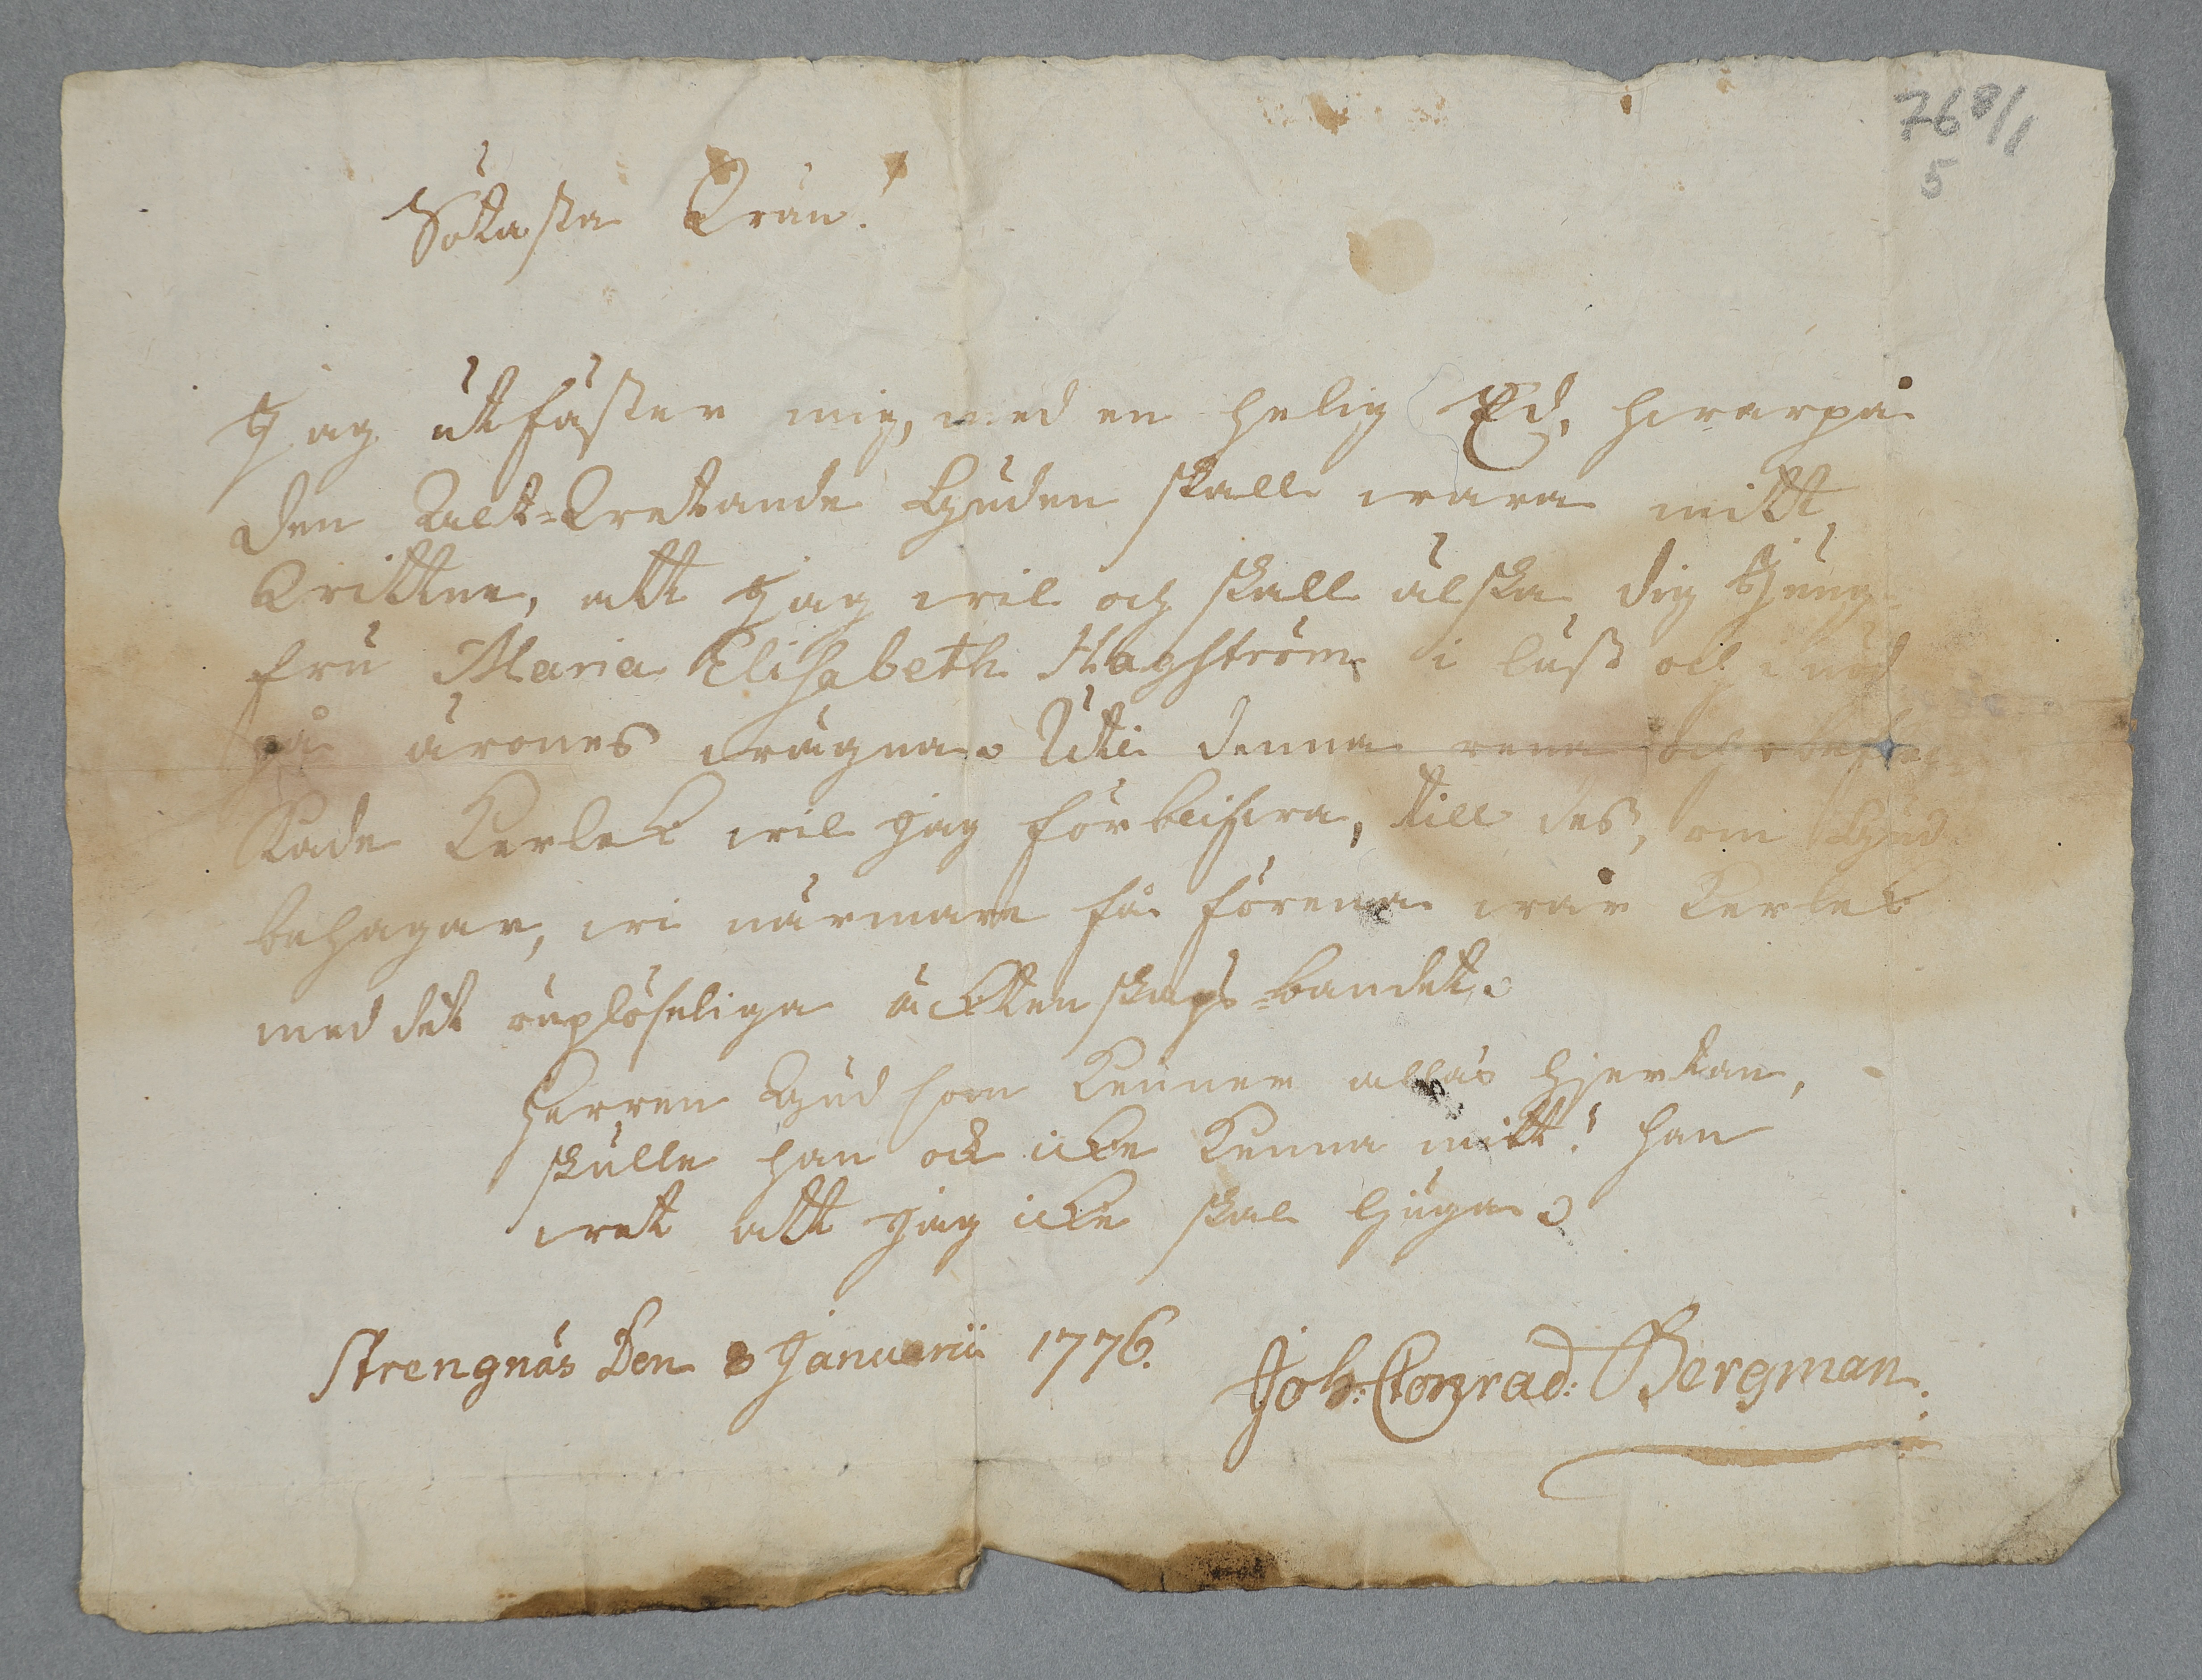 768/1
5
Sötasta Wän!
Jag utfäster mig, med en helig Ed, hwarpå
den Alt-Wetande Guden skall wara mitt
Wittne, att jag wil och skall älska dig Jung-
fru Maria Elisabeth Hagström i lust och i nöd
på ärones wägnar. Uti denna rena och obeflec-
kade Kerlek wil jag förblifwa, till dess, om Gud
behagar, wi närmare få förena wår Kerlek
med det ouplöseliga äcktenskaps-bandet.
Herren Gud som kenner allas hjertan,
skulle han ock icke kenna mitt! han
wet att jag icke skal ljuga.
Strengnäs Den 8 Januarii 1776.
Joh: Conrad: Bergman.